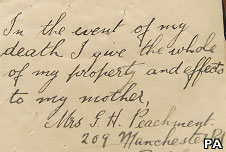 In the event of my
death I give the whole
of my property and effects
to my mother,
Mrs G. H. Peachment.
209 Manchester Rd
PA